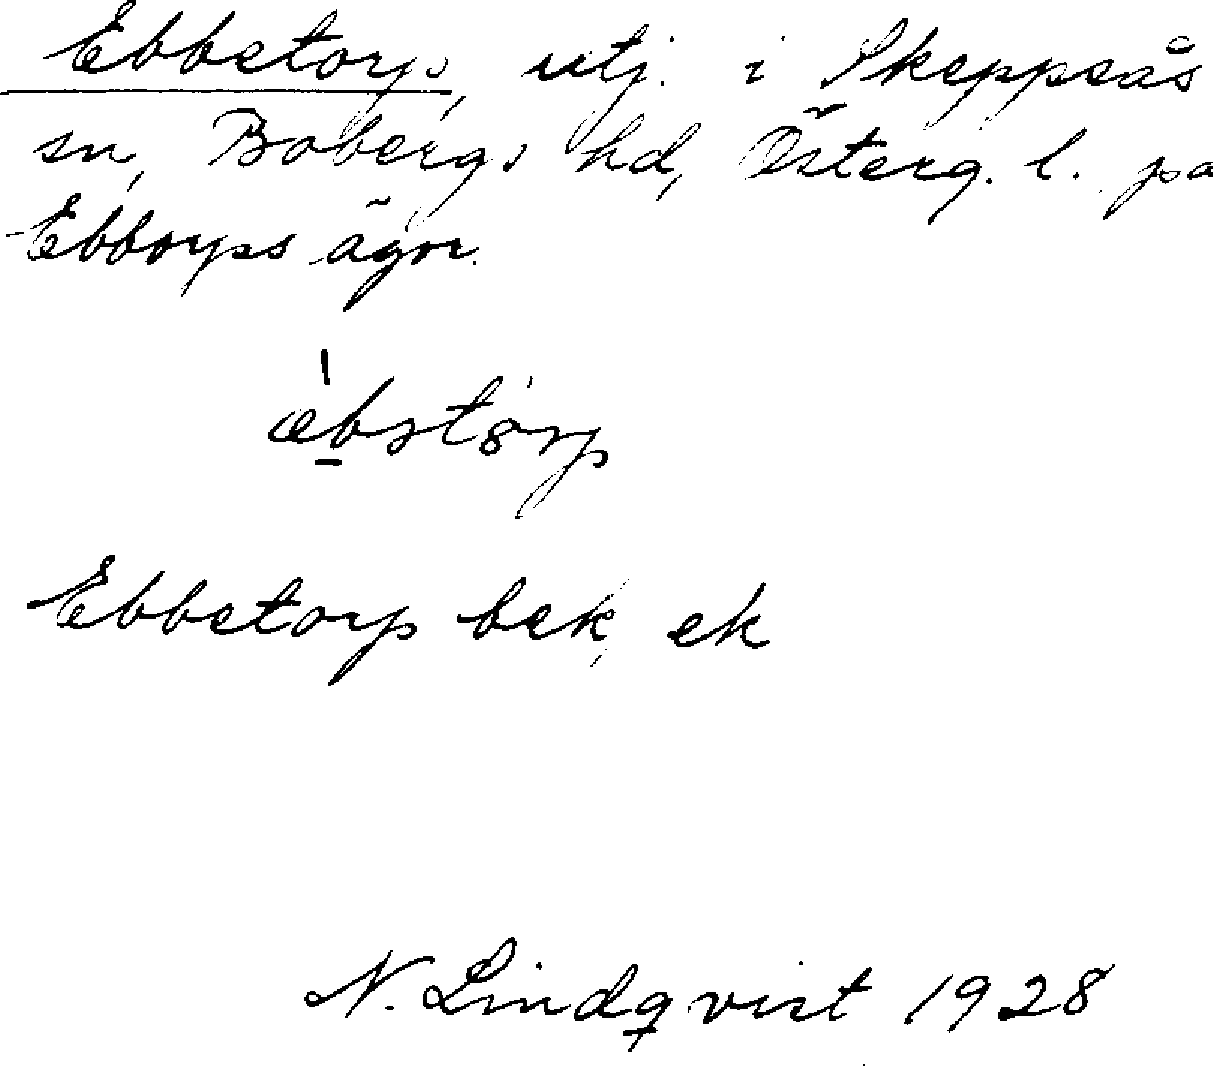 Ebbetorp, utj. i Skeppsås
sn, Bobergs hd, Österg. l. på
Ebborps ägor.
æ̀bstörp
Ebbetorp bek, ek
N. Lindqvist 1928